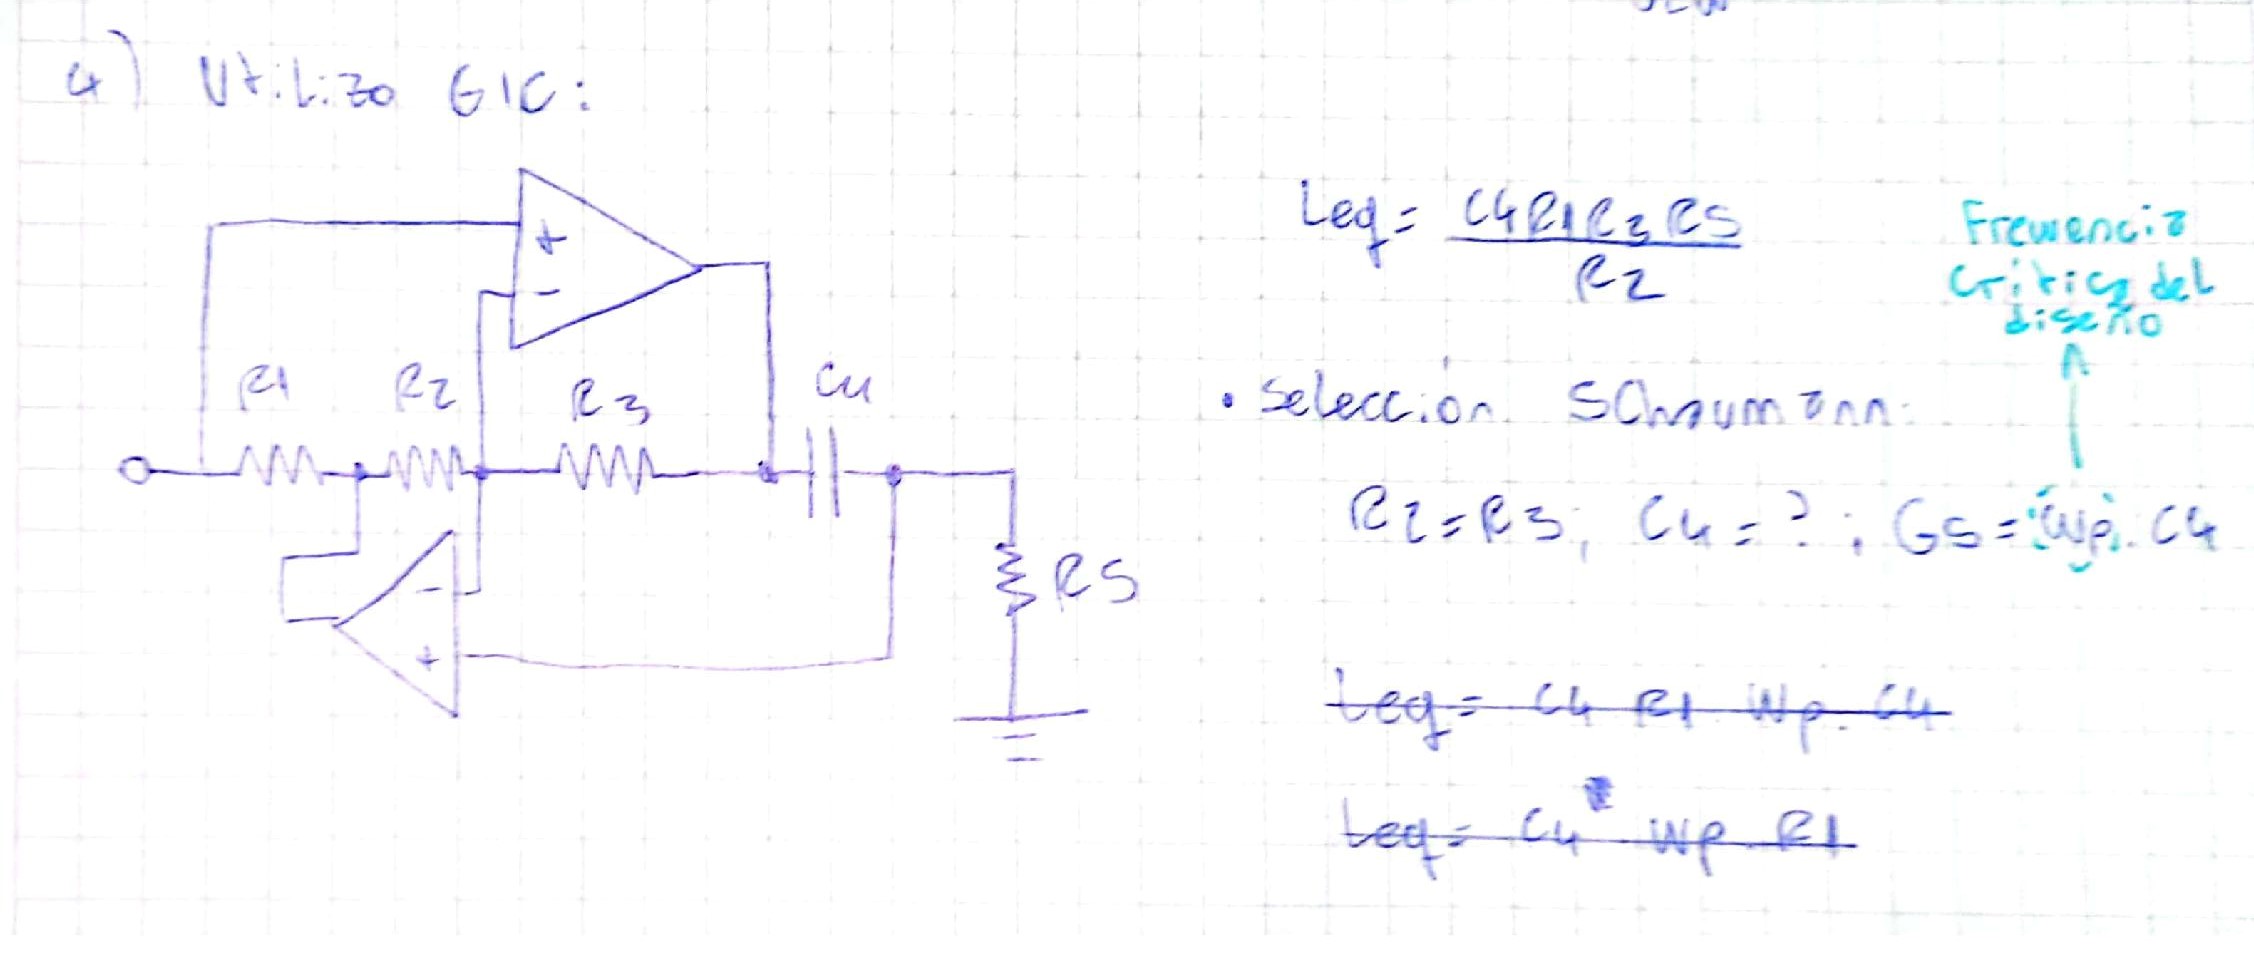 4) Utilizo GIC:
+
-
R1
R2
R3
C4
-
+
R5
Leq = C4R1R3R5
R2
Frecuencia
crítica del
diseño
• Selección Schaumann:
R2=R3; C4=?; G5=Wp.C4
Leq= C4 R1 Wp. C4
Leq= C4 Wp R1